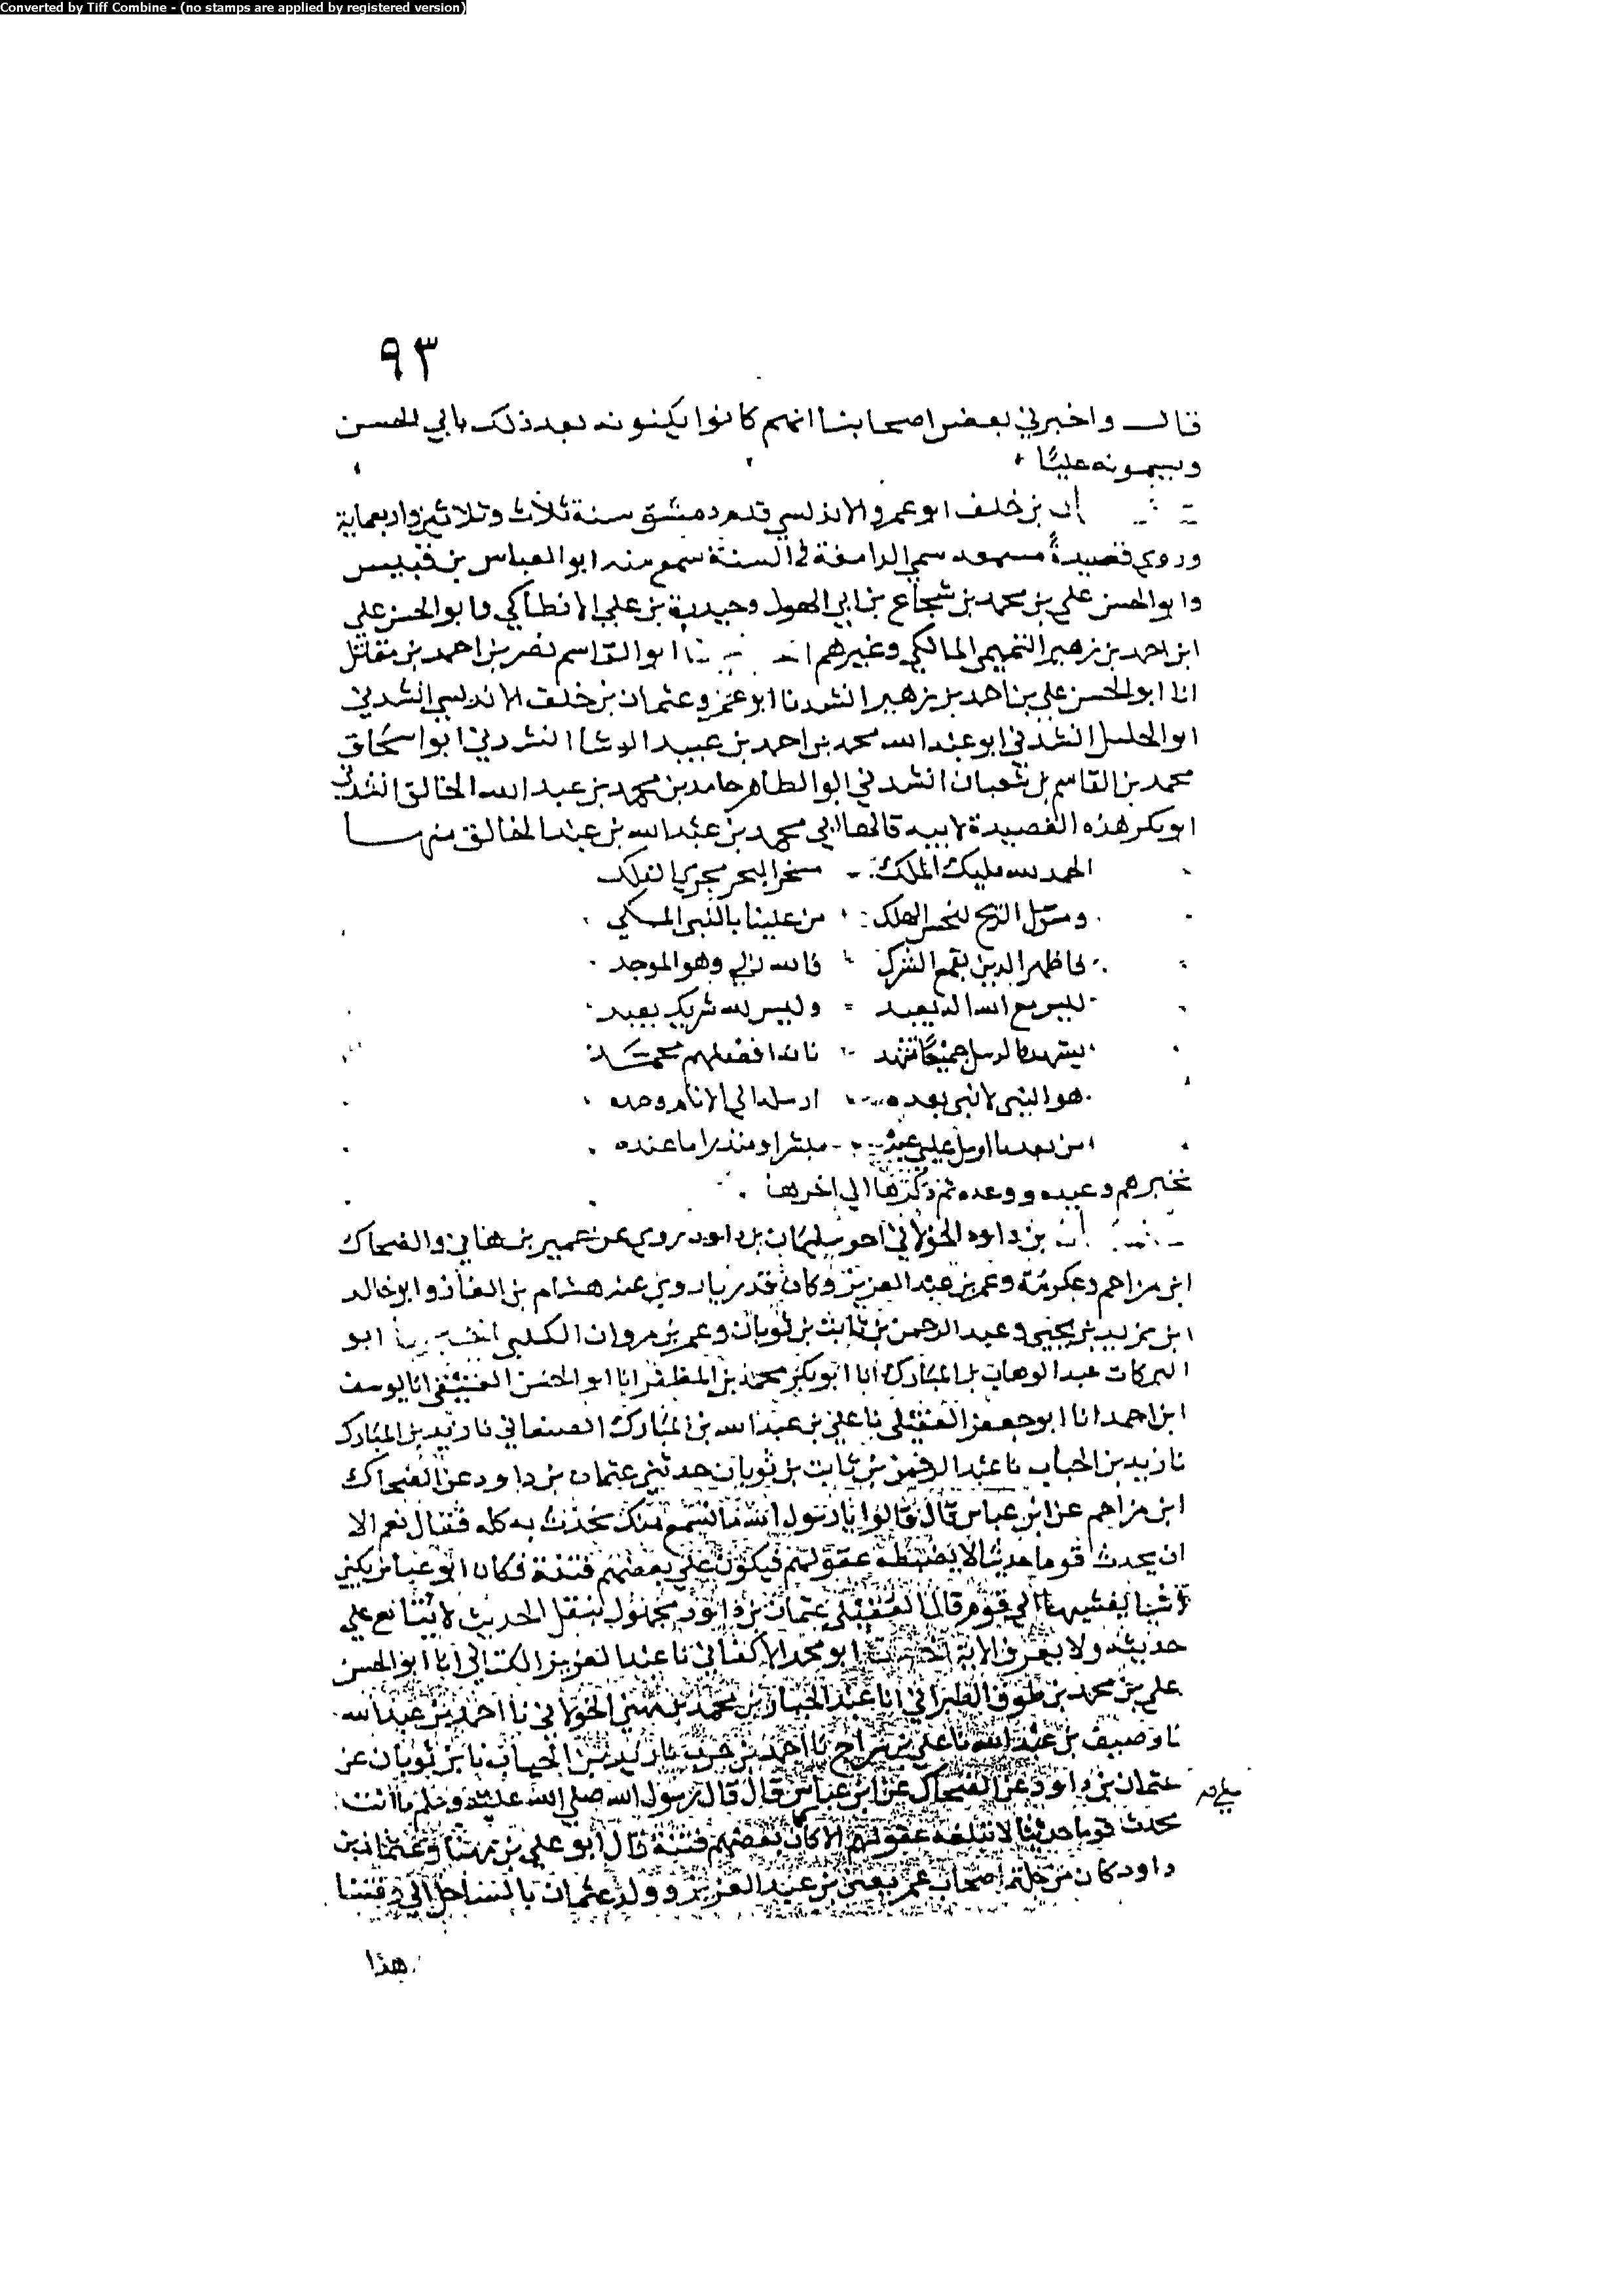 Converted by Tiff Combine - (no stamps are applied by registered version)
٩٣
قال واخبرني بعض اصحابنا انهم كانوا يكنونه بعد ذلك بابي الحسن
ويسمونه عليا
بن خلف ابو عمرو الاندلسي قدم دمشق سنة ثلاث وثلاثين واربعماية
وروي قصيدة الدامغة في السنة سمع منه ابو العباس بن قبيس
وابو الحسن علي بن محمد بن شجاع بن ابي الهول وحيدرة بن علي الانطاكي وابو الحسن علي
ابن احمد بن زهير التميمي المالكي وغيرهم ابو القاسم نصر بن احمد بن مقاتل
انا ابو الحسن علي بن احمد بن زهير انشدنا ابو عمرو عثمان بن خلف الاندلسي انشدني
انشدني ابو عبد الله محمد بن احمد بن عبيد الوشا انشدني ابو اسحاق
محمد بن القاسم بن شعبان انشدني ابو الطاهر حامد بن محمد بن عبد الله الخالق انشدني
ابو بكر هذه القصيدة لابيه قالها ابي محمد بن عبد الله بن عبد الخالق منها
الحمد لله مليك الملك مسخر البحر مجري الفلك
ومرسل الريح من علينا بالنبي المكي
فاظهر الدين بقمع الشرك فالله ربي وهو الموحد
ليس مع الله اله يعبد وليس لله شريك يعبد
جميعا نشهد افضلهم محمد
هو النبي لا نبي بعده ارسله الي الانام وحده
من بعد ما ارسل عيسي عبده مبشرا ومنذرا ما عنده
يخبرهم وعيده ووعده ثم ذكرها الي اخرها
بن داود الخولاني اخو سليمان بن داود روي عن عمير بن هاني والضحاك
ابن مزاحم وعكرمة وعمر بن عبد العزيز وكان قدريا روي عنه هشام بن الغاز وابو خالد
ابن يزيد بن يحيي وعبد الرحمن بن ثابت بن ثوبان وعمر بن مروان الكلبي ابو
البركات عبد الوهاب بن المبارك انا ابو بكر محمد بن المظفر انا ابو الحسن العتيقي انا يوسف
ابن احمد انا ابو جعفر العقيلي نا علي بن عبد الله بن المبارك الصنعاني نا زيد بن المبارك
نا زيد بن الحباب نا عبد الرحمن بن ثابت بن ثوبان حدثني عثمان بن داود عن الضحاك
ابن مزاحم عن ابن عباس قال قالوا يا رسول الله ما نسمع منك نحدث به كله فقال نعم الا
ان يحدث قوما حديثا لا يضبطه عقولهم فيكون علي بعضهم فتنة فكان ابو عباس يكني
اشيا يفشيها الي قوم قال العقيلي عثمان بن داود مجهول بنقل الحديث لا يتابع علي
حديثه ولا يعرف الا به ابو محمد الاكفاني نا عبد العزيز الكتاني انا ابو الحسن
علي بن محمد بن طوق الطبراني انا عبد الجبار بن محمد بن مهني الخولاني نا احمد بن عبد الله
نا وصيف بن عبد الله نا علي بن سراج نا احمد بن حرب نا زيد بن الحباب نا بن ثوبان عن
عثمان بن داود عن الضحاك عن ابن عباس قال قال رسول الله صلي الله عليه وسلم ما انت
بحدث قوما حديثا لا تبلغه عقولهم الا كان بعضهم فتنة قال ابو علي بن مهنا وعثمان بن
داود كان من جلة اصحاب عمر يعني بن عبد العزيز وولد عثمان بالساحل الي وقتنا
هذا